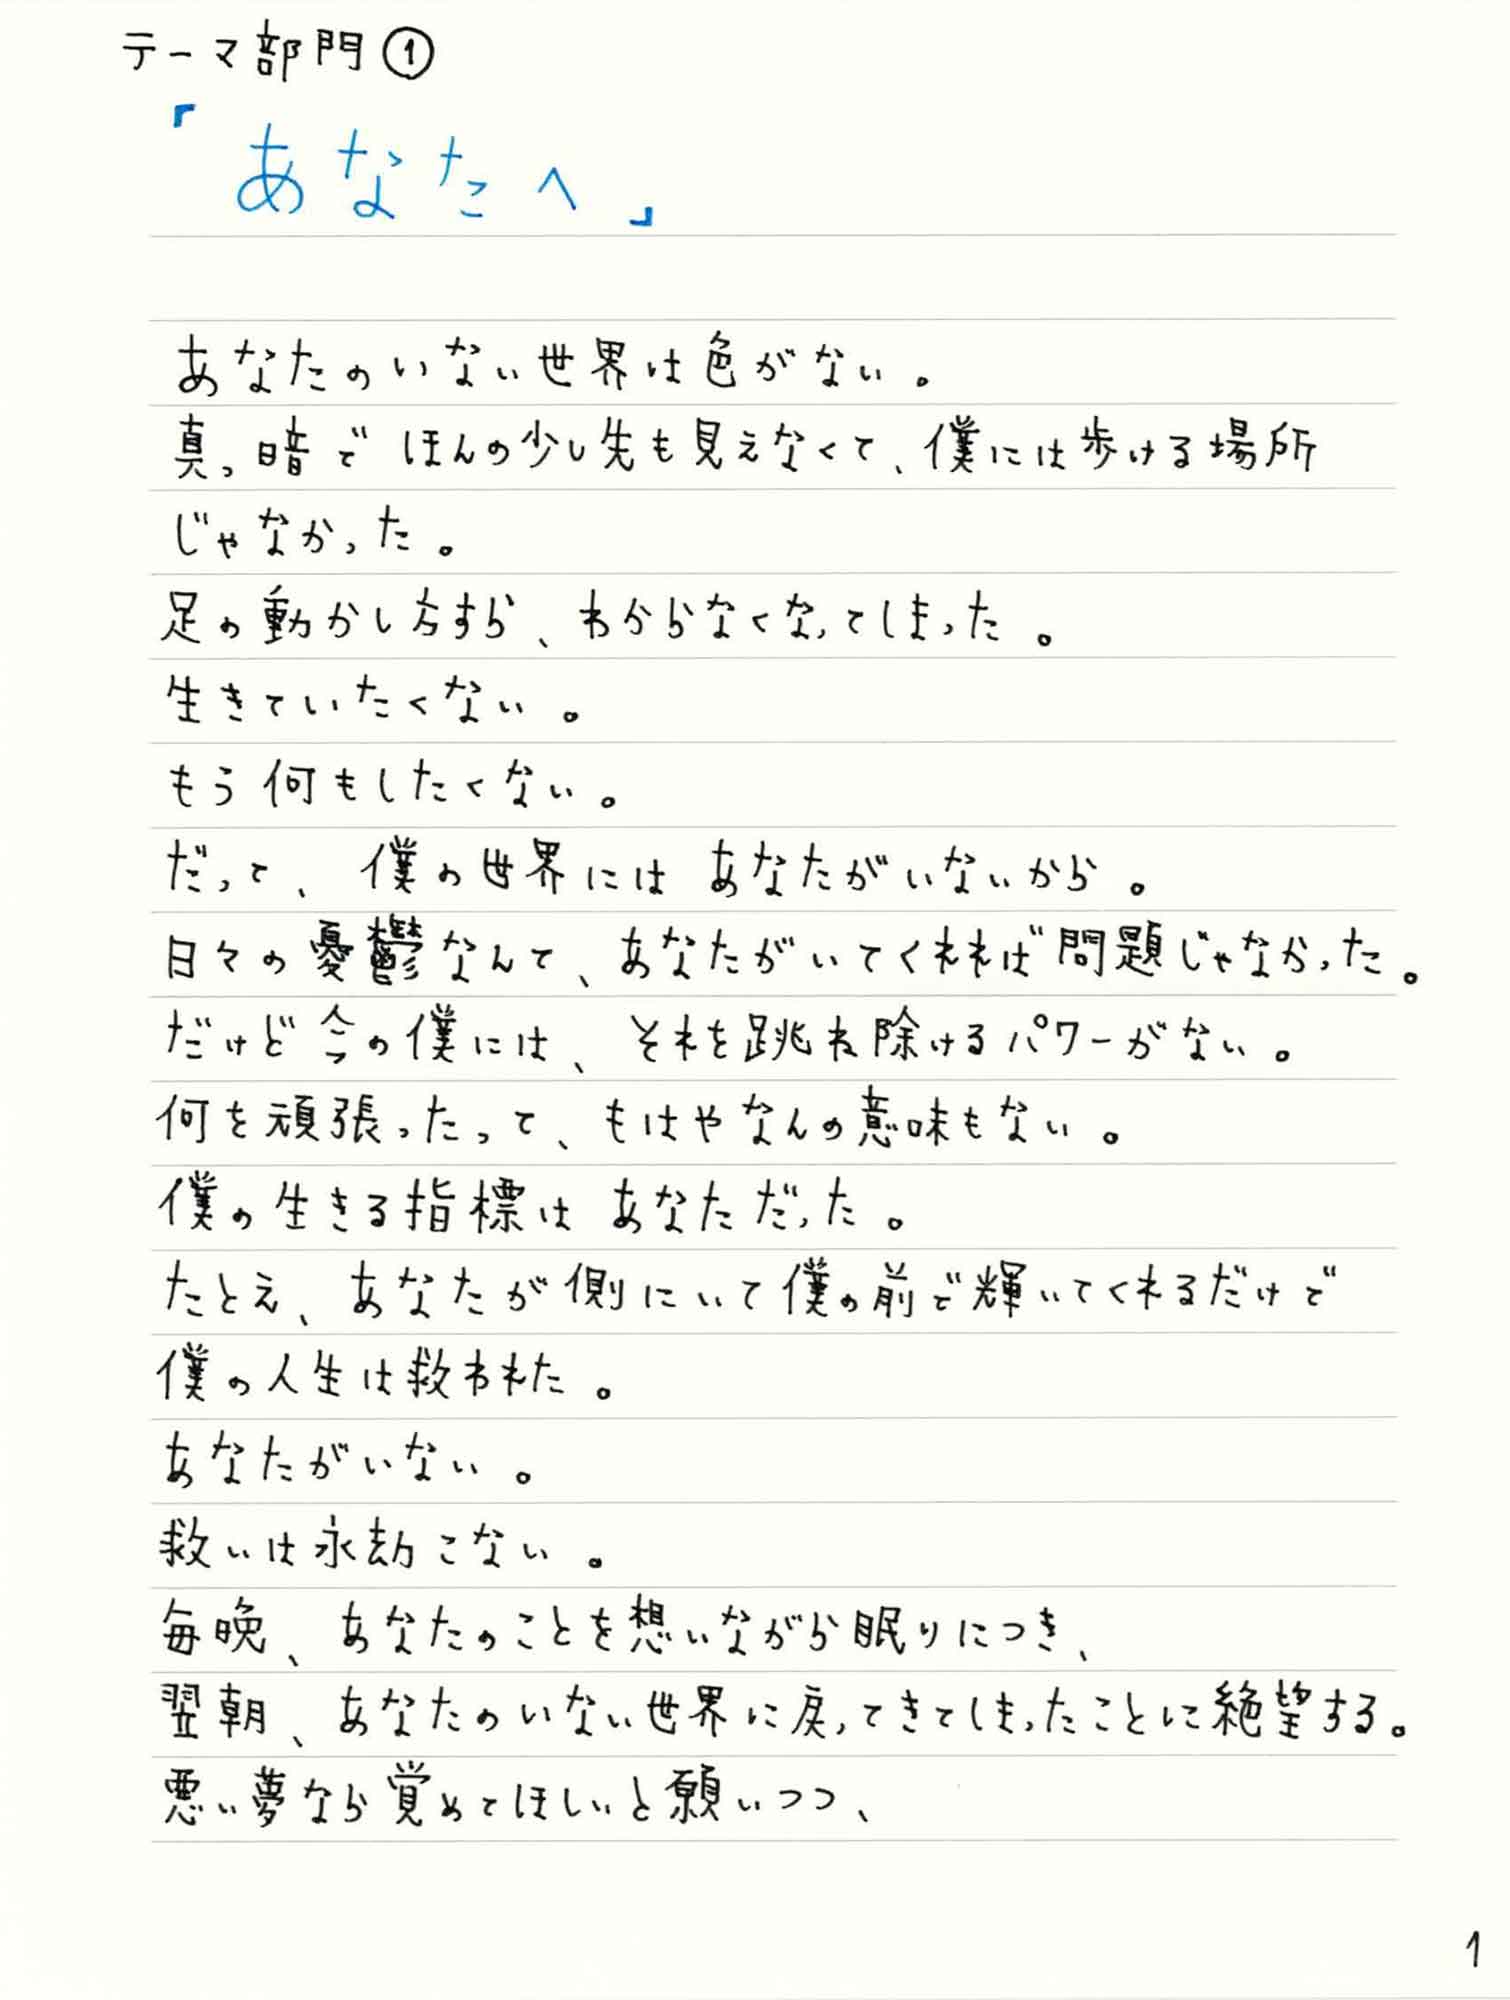 テーマ部門①
「あなたへ」
あなたのいない世界は色がない。
真っ暗でほんの少し先も見えなくて、僕には歩ける場所
じゃなかった。
足の動かし方すら、わからなくなってしまった。
生きていたくない。
もう何もしたくない。
だって、僕の世界にはあなたがいないから。
日々の憂鬱なんて、あなたがいてくれれば問題じゃなかった。
だけど今の僕には、それを跳ね除けるパワーがない。
何を頑張ったって、もはやなんの意味もない。
僕の生きる指標はあなただった。
たとえ、あなたが側にいて僕の前で輝いてくれるだけで
僕の人生は救われた。
あなたがいない。
救いは永劫こない。
毎晩、あなたのことを想いながら眠りにつき、
翌朝、あなたのいない世界に戻ってきてしまったことに絶望する。
悪い夢なら覚めてほしいと願いつつ、
1